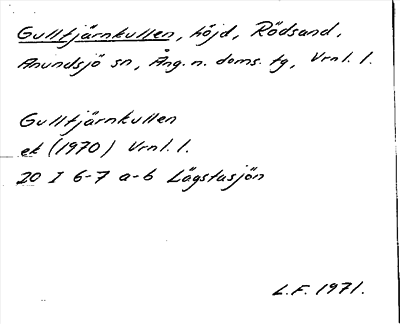 Gulltjärnkullen, höjd, Rödsand,
Anundsjö sn, Ång. n. doms. tg, Vrnl. l.
Gulltjärnkullen
ek (1970) Vrnl. l.
20 I 6-7 a-b Lägstasjön
L.F. 1971.